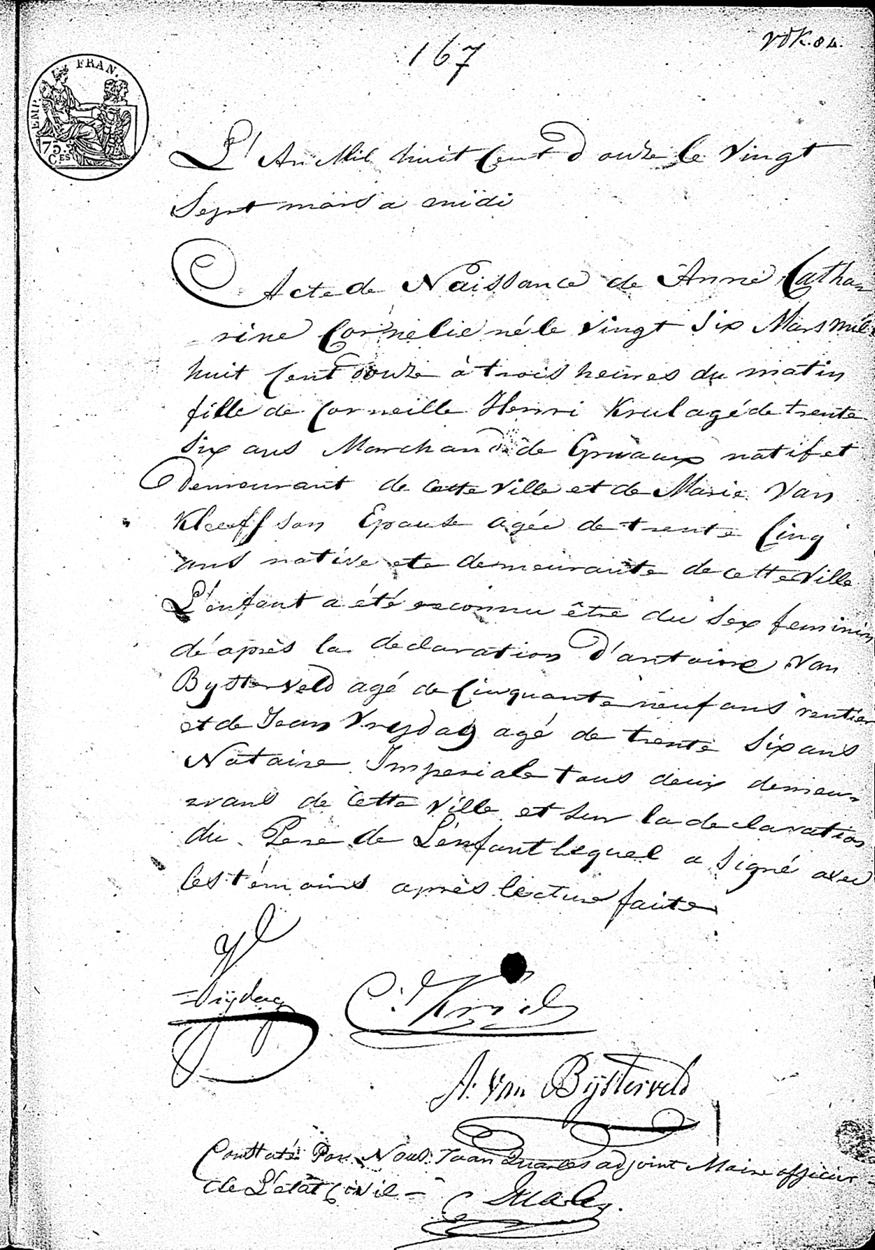 167
VDK. 84.
EMP. FRAN.
75
CES
L'An Mil huit Cent douze le Vingt
Sept mars a midi
Acte de Naissance de Anne Catha
rine Cornelie né le Vingt Six Mars mil
huit Cent douze à trois heures du matin
fille de Corneille Henri Krul agé de trente
Six ans Marchand de Gruaux natif et
demeurant de Cette Ville et de Marie Van
Kleeff son Epouse agée de trente Cinq
ans native ete demeurante de cette Ville
L'enfant a été reconnu être du Sex feminin
de'après la declaration d'antoine Van
Bysterveld agé de Cinquante neuf ans rentier
et de Jean Vrydag agé de trente Six ans
Notaire Imperiale tous deux demeu
rans de Cette Ville et sur la declaration
du Pere de L'enfant lequel a Signé avec
les témoins après lecture faite
Vrijdag
C. Krul
A. Van Bijsterveld
Constaté Par Nous Jean Quarles adjoint Maire officier
de L'état Civil
Quarles